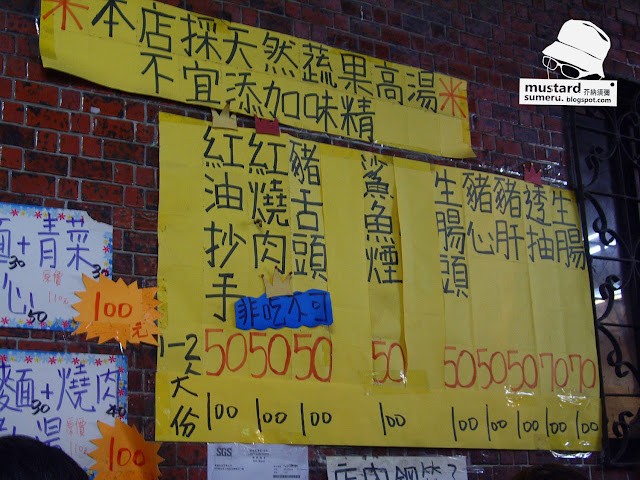 *本店採天然蔬果高湯*
不宜添加味精
mustard 芥納須彌
sumeru. blogspot.com
紅油抄手
紅燒肉
豬舌頭
鯊魚煙
生腸頭
豬心
豬肝
透抽
生腸
非吃不可
1-2 50 50 50 50 50 50 50 70 70
大份 100 100 100 100 100 100 100 100 100
麵+青菜
30 30
心
50
原價
110
100元
麵+燒肉
30 40
湯
原價
100
SGS